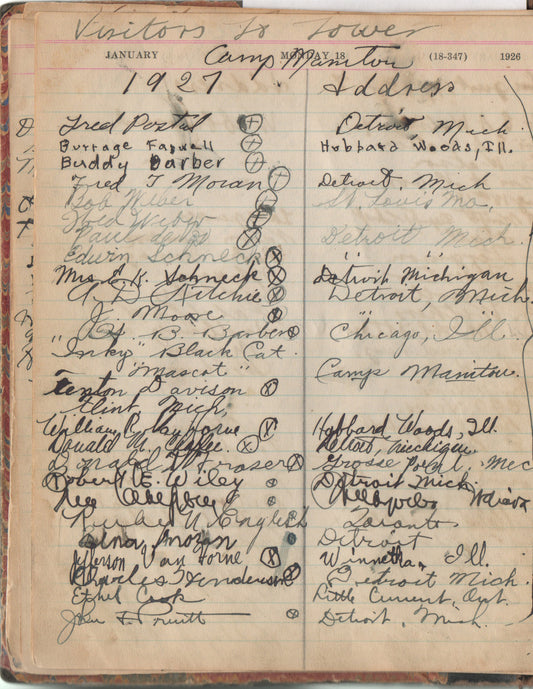 Visitors to Tower
JANUARY MONDAY 18 (18-347) 1926
Camp Manitou
1927 Address
Fred Postal Detroit, Mich
Burrage Farwell Hubbard Woods, Ill.
Buddy Barber
Fred T Moran Detroit, Mich
Bob Weber St. Louis Mo,
Detroit Mich.
Edwin Schneck " "
Mrs. E. K. Schneck Detroit Michigan
A. D. Ritchie Detroit, Mich.
J. Moore " "
B. Barber Chicago, Ill.
"Inky" Black Cat.
"Mascot" Camp Manitou.
Fenton Davison
Flint Mich,
William R. Hubbard Woods, Ill.
Donald M. Detroit, Michigan
Donald Fraser Grosse Point, Mec
Robert E. Wiley Detroit Mich
English Toronto
Edna Moran Detroit
Jefferson Van Horne Winnetka, Ill.
Charles Henderson Detroit Mich.
Ethel Cook Little Current, Ont.
John F. Pruitt Detroit, Mich.